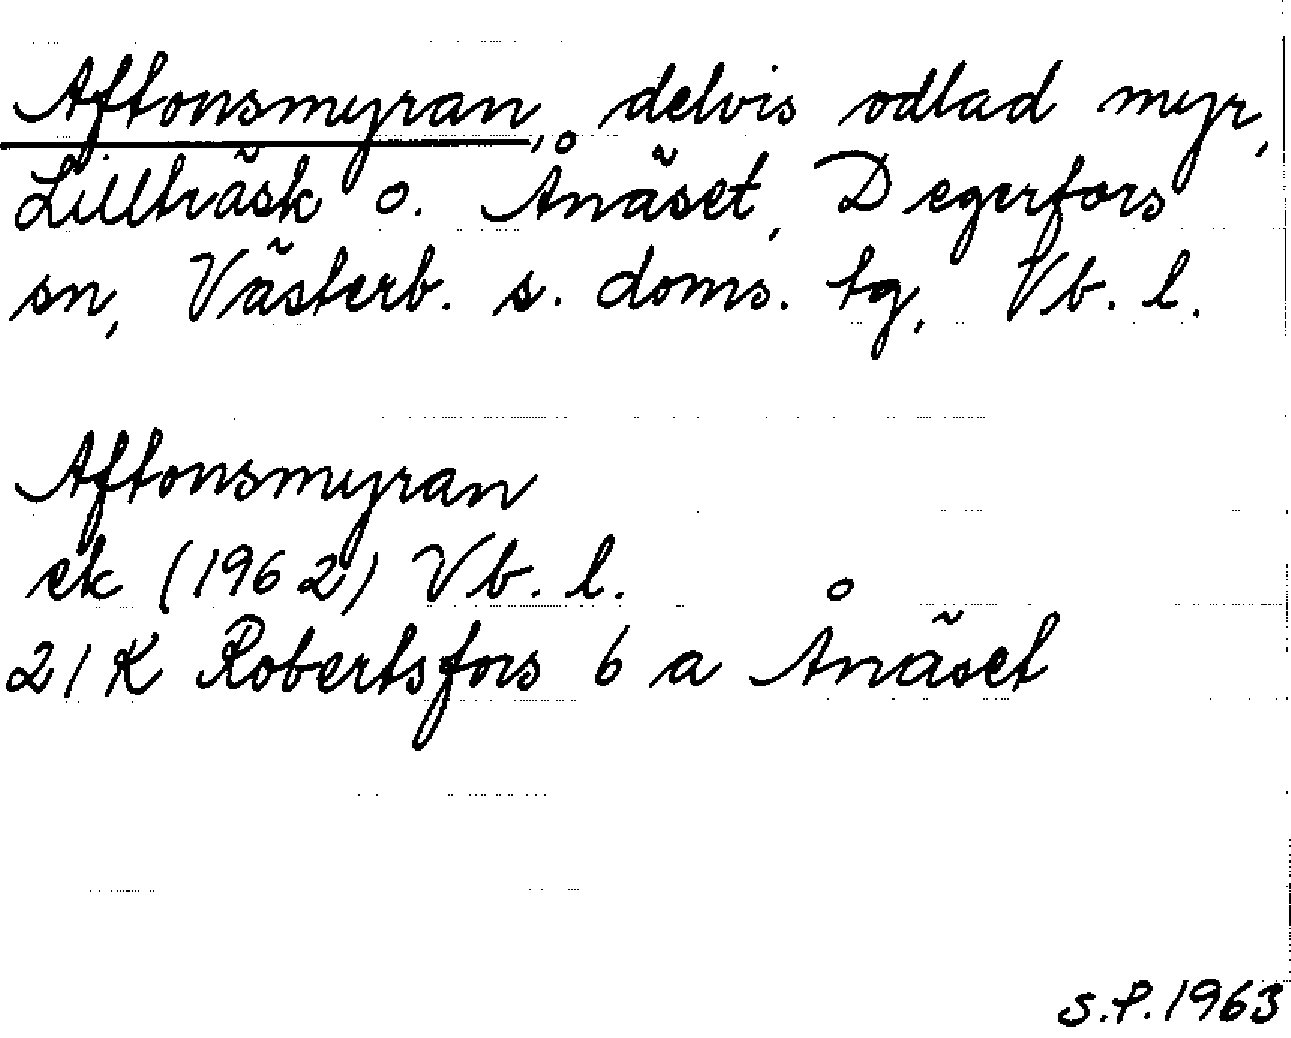 Aftonsmyran, delvis odlad myr,
Lillträsk o. Ånäset, Degerfors
sn, Västerb. s. doms. tg, Vb. l.
Aftonsmyran
ek (1962) Vb. l.
21K Robertsfors 6 a Ånäset
S.P. 1963